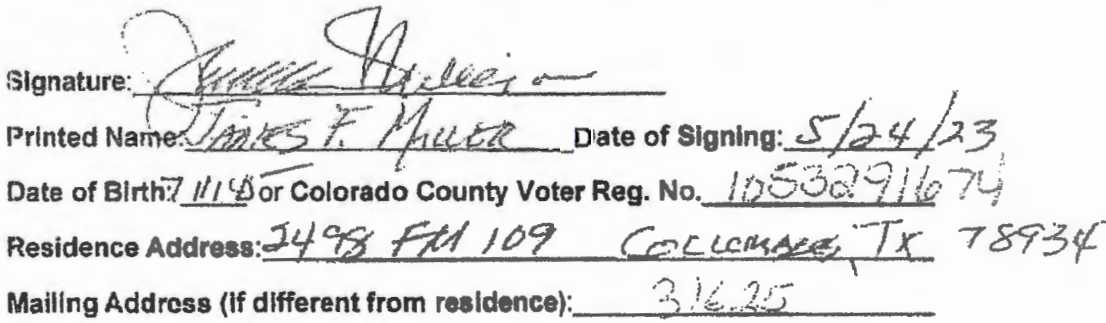 Signature:
Printed Name: James F. Miller Date of Signing: 5/24/23
Date of Birth or Colorado County Voter Reg. No. 1053291674
Residence Address: 2498 FM 109 TX 78934
Mailing Address (if different from residence): 316.25